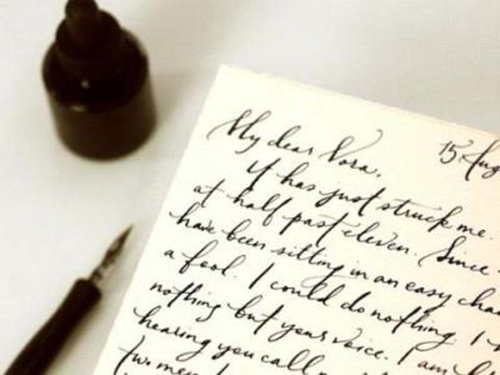 My dear Nora, 15. Aug
it has just struck me.
at half past eleven. Since
have been sitting in an easy cha
a fool. I could do nothing. I
nothing but your voice. I am l
hearing you call
two men